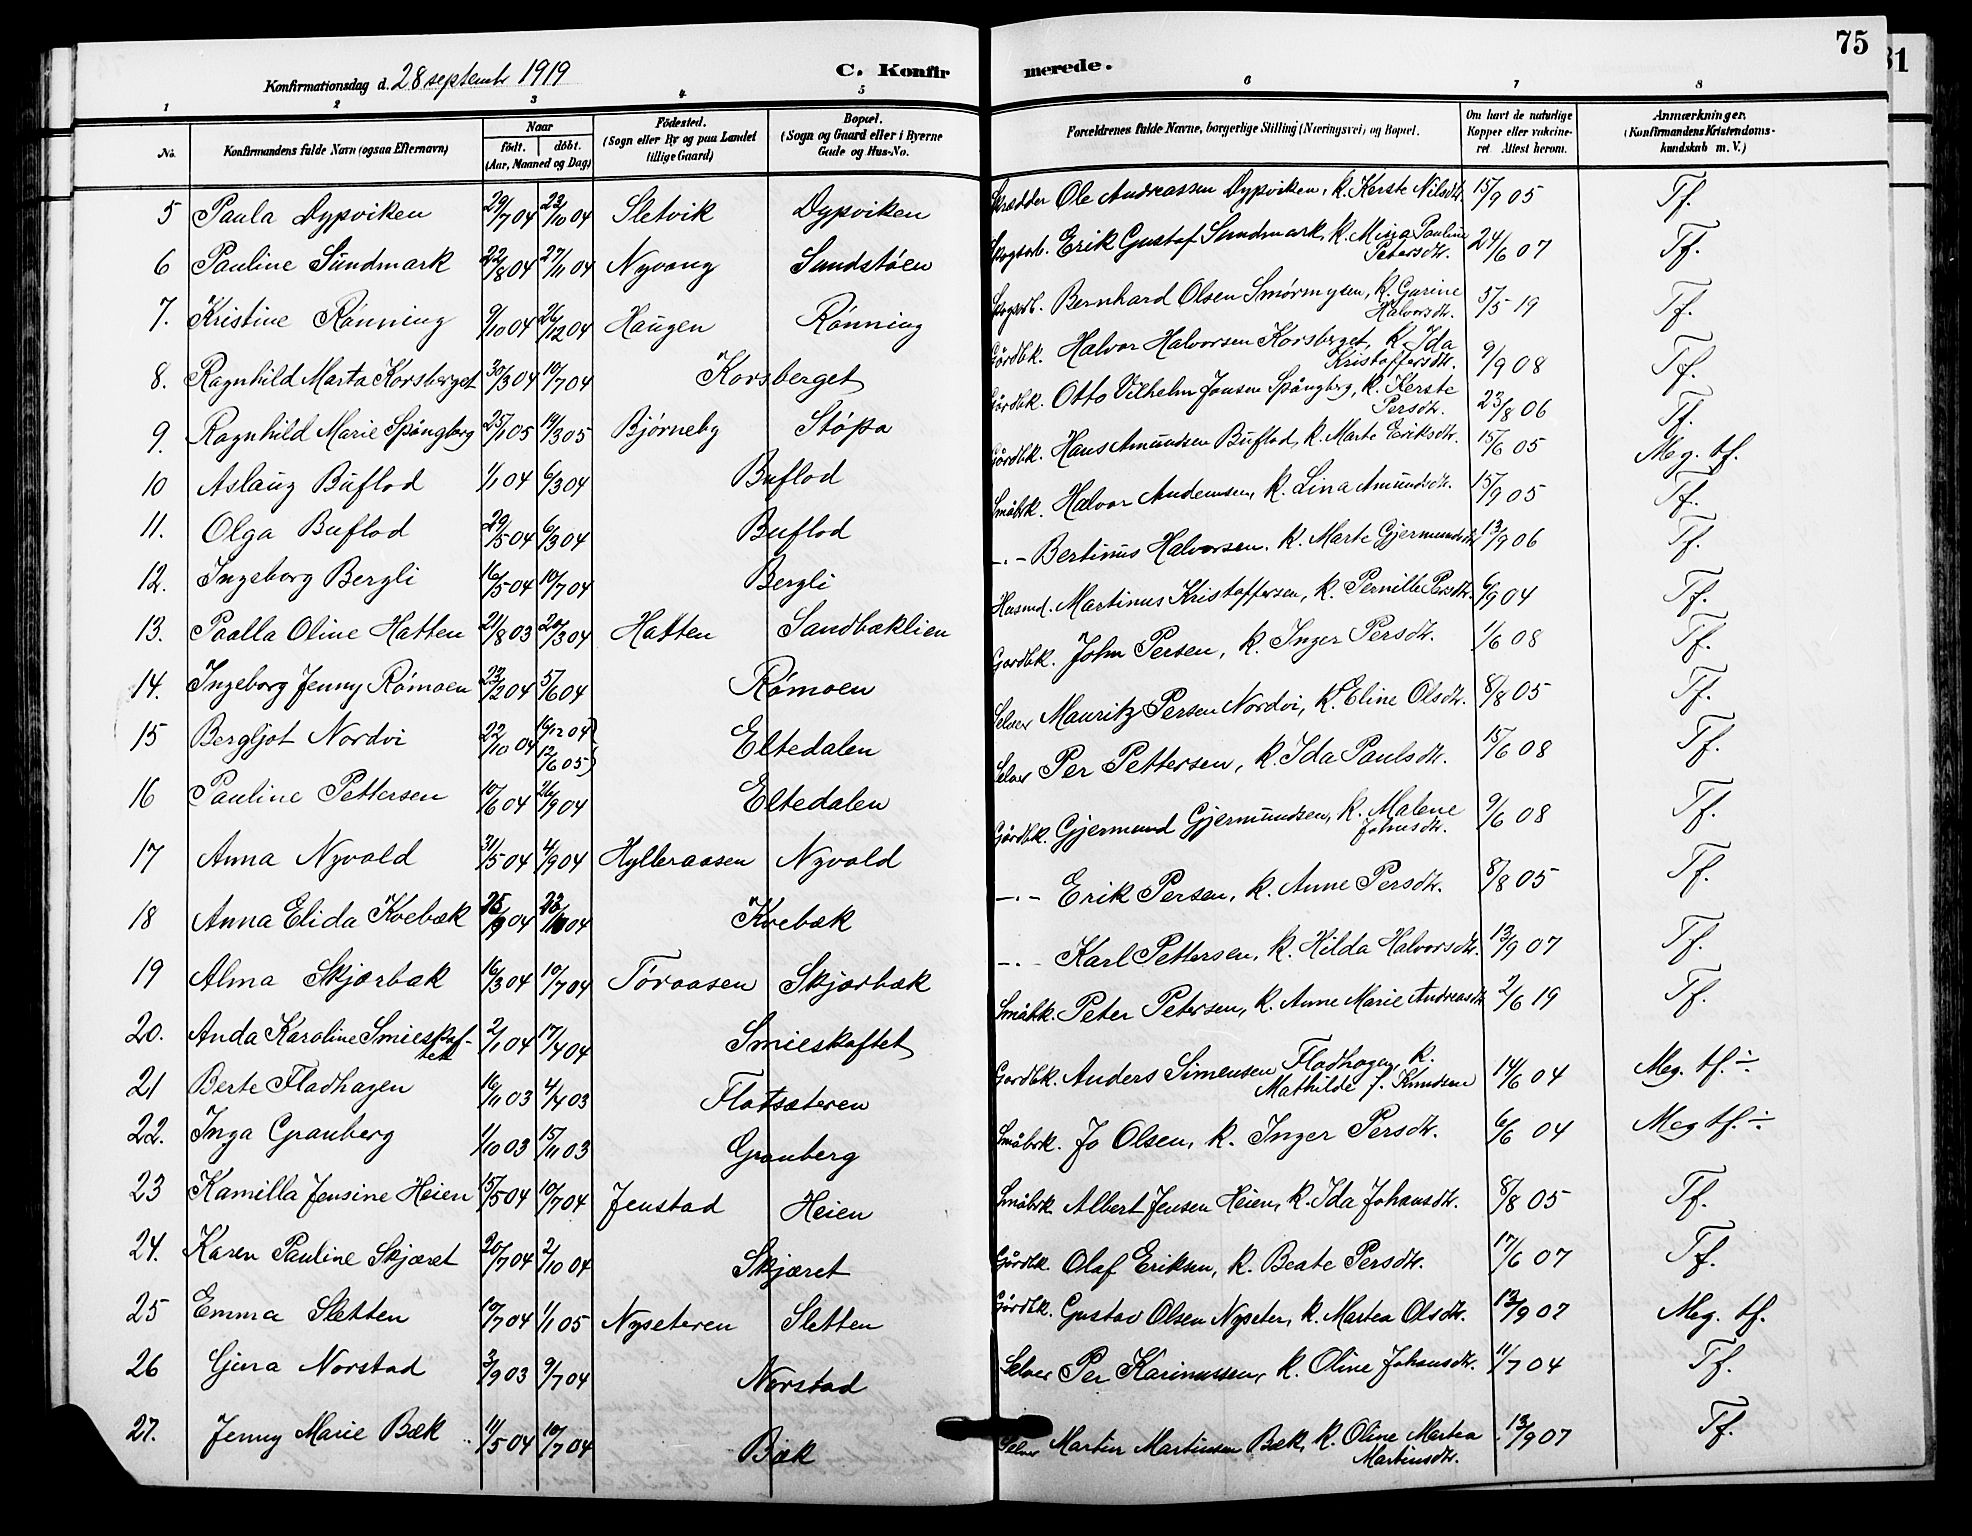 75
31
Konfirmationsdag d. 28 septembr 1919
C. Konfir merede.
1 2 3 4 5 6 7 8
No. Konfirmandens fulde Navn (ogsaa Efternavn) Naar født. døbt. (Aar, Maaned og Dag) Fødested. (Sogn eller By og paa Landet tillige Gaard) Bopæl. (Sogn og Gaard eller i Byerne Gade og Hus-No. Forældrenes fulde Navne, borgerlige Stilling (Næringsvei) og Bopæl. Om havt de naturlige Kopper eller vakcineret. Attest herom. Anmærkninger. (Konfirmandens Kristendomskundskab m. V.)
5 Paula Dypviken 29/7 04 22/10 04 Sletvik Dypviken Skrædder Ole Andreassen Dypviken, k. Kerste Nilsdtr. 15/9 05 Tf.
6 Pauline Sundmark 22/8 04 27/11 04 Nyvang Sandstøen Skogsarb. Erik Gustaf Sundmark, k. Mina Pauline Petersdtr. 24/6 07 Tf.
7. Kristine Rønning 9/10 04 26/12 04 Haugen Rønning Bernhard Olsen Smørmysen, k. Gurine Halvorsdtr. 5/5 19 Tf.
8. Ragnhild Marta Korsberget 30/3 04 10/7 04 Korsberget Gårdbk. Halvor Halvorsen Korsberget, k. Ida Kristoffersdtr. 9/9 08 Tf.
9. Ragnhild Marie Spångberg 25/1 05 19/3 05 Bjørneby Støpa Gårdbk. Otto Vilhelm Jansen Spångberg, k. Kerste Persdtr. 23/8 06 Tf.
10 Aslaug Buflod 1/1 04 6/3 04 Buflod Gårdbk. Hans Amundsen Buflod, k. Marte Eriksdtr. 15/6 05 Meg. tf.
11. Olga Buflod 29/5 04 6/3 04 Buflod Småbk. Halvor Andemsen, k. Lina Amundsdtr. 15/9 05 Tf.
12. Ingeborg Bergli 16/5 04 10/7 04 Bergli -.- Bertinus Halvorsen, k. Marte Gjermundsdtr. 13/9 06 Tf.
13. Paalla Oline Hatten 21/8 03 20/3 04 Hatten Sandbæklien Husmd. Martinus Kristoffersen, k. Pernille Persdtr. 6/9 04 Tf.
14. Ingeborg Jenny Rømoen 23/2 04 5/6 04 Rømoen Gardbk. John Persen, k. Inger Persdtr. 1/6 08 Tf.
15 Bergljot Nordvi 22/10 04 16/12 04) 12/6 05) Eltedalen Selver Mauritz Persen Nordvi, k. Eline Olsdtr. 8/8 05 Tf.
16 Pauline Pettersen 10/6 04 26/9 04 Eltedalen Selver Per Pettersen, k. Ida Paulsdtr. 15/6 08 Tf.
17 Anna Nyvold 31/5 04 4/9 04 Hylleraasen Nyvold Gårdbk. Gjermund Gjermundsen, k. Malene Johnsdtr. 9/6 08 Tf.
18 Anna Elida Kvebæk 25/9 04 23/10 04 Kvebæk -.- Erik Persen, k. Anne Persdtr. 8/8 05 Tf.
19 Alma Skjærbæk 16/3 04 10/7 04 Tøraasen Skjærbæk -.- Karl Pettersen, k. Hilda Halvorsdtr. 13/9 07 Tf.
20. Anda Karoline Smieskaftet 2/1 04 17/4 04 Smieskaftet Småbk. Peter Petersen, k. Anne Marie Andreasdtr. 2/6 19 Tf.
21 Berte Fladhagen 16/11 03 4/4 03 Flatsæteren Gardbk. Anders Simensen Fladhagen, k. Mathilde f. Knudsen 14/6 04 Meg. tf. ÷
22. Inga Granberg 1/10 03 15/11 03 Granberg Småbrk. Jo Olsen, k. Inger Persdtr. 6/6 04 Meg tf. ÷
23 Kamilla Jensine Heien 15/5 04 10/7 04 Jenstad Heien Småbrk. Albert Jensen Heien, k. Ida Johansdtr. 8/8 05 Tf.
24. Karen Pauline Skjæret 20/7 04 2/10 04 Skjæret Gårdbk. Olaf Eriksen, k. Beate Persdtr. 17/6 07 Tf.
25 Emma Sletten 10/7 04 1/1 05 Nyseteren Sletten Gårdbk. Gustav Olsen Nyseter, k. Martea Olsdtr. 13/9 07 Meg. tf.
26 Gina Norstad 3/9 03 9/7 04 Norstad Selver Per Karinussen, k. Oline Johansdtr. 11/7 04 Tf.
27. Jenny Marie Bæk 11/5 04 10/7 04 Bæk Selver Martin Martinsen Bæk, k. Oline Martea Martinsdtr. 13/9 07 Tf.